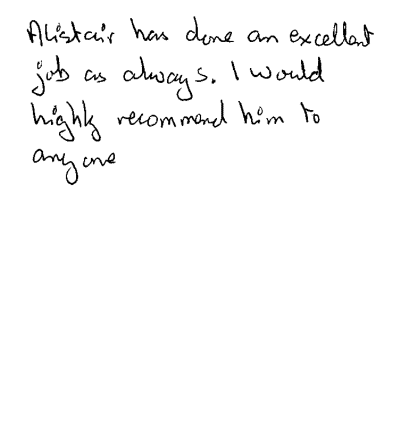 Alistair has done an excellent
job as always. I would
highly recommend him to
anyone